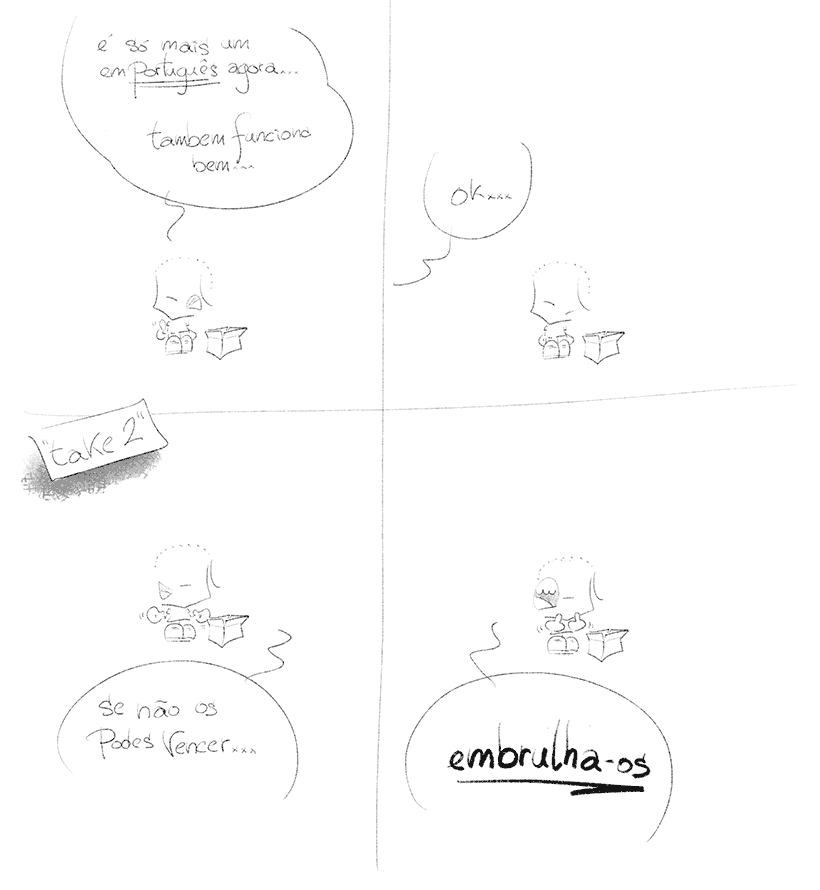 é só mais um
em português agora...
tambem funciona
bem...
ok...
"take 2"
se não os
Podes Vencer...
embrulha-os